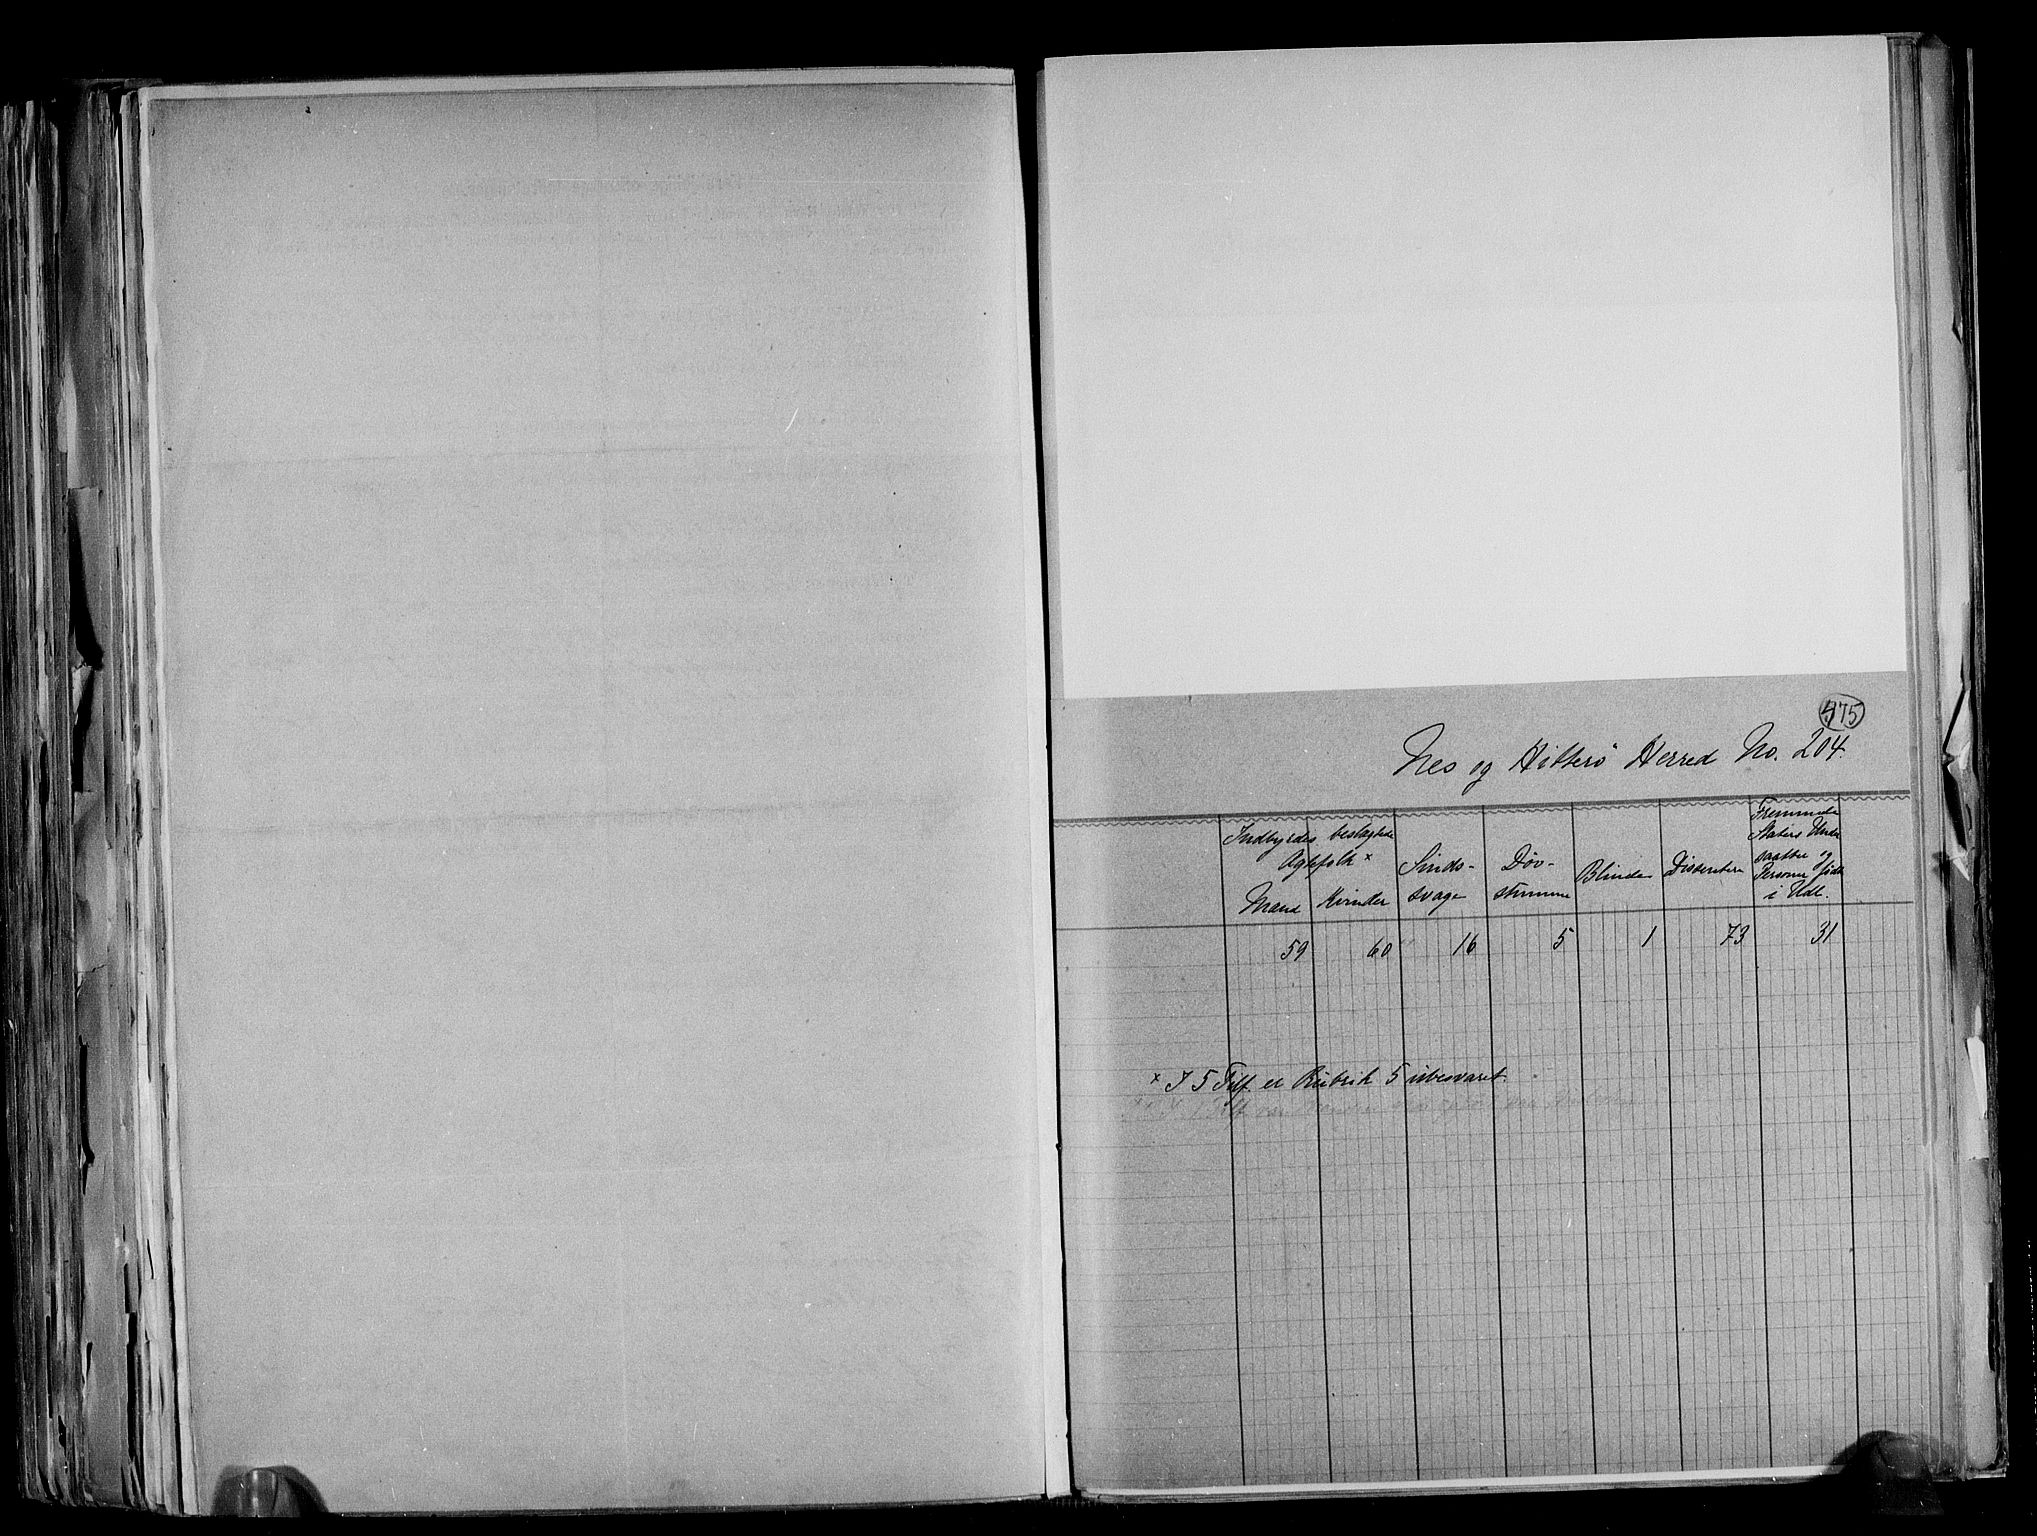 475
Nes og Hitterö Herred No. 204.
Indbyrdes beslægtede Ægtefolk x
Mænd
Kvinder
Sinds-
svage
Døv-
stumme
Blinde
Dissentere
Fremmede
Staters Under
saatter og
Personer født
i Udl.
59 60 16 5 1 73 31
x I 5 Tilf. er Rubrik 5 ubesvaret.